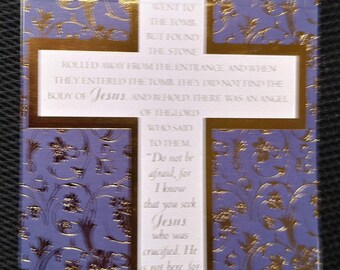 WENT TO
THE TOMB
BUT FOUND
THE STONE
ROLLED AWAY FROM THE ENTRANCE, AND WHEN
THEY ENTERED THE TOMB, THEY DID NOT FIND THE
BODY OF Jesus. AND BEHOLD, THERE WAS AN ANGEL
OF THE LORD
WHO SAID
TO THEM,
"Do not be
afraid, for
I know
that you seek
Jesus
who was
crucified. He
is not here, for